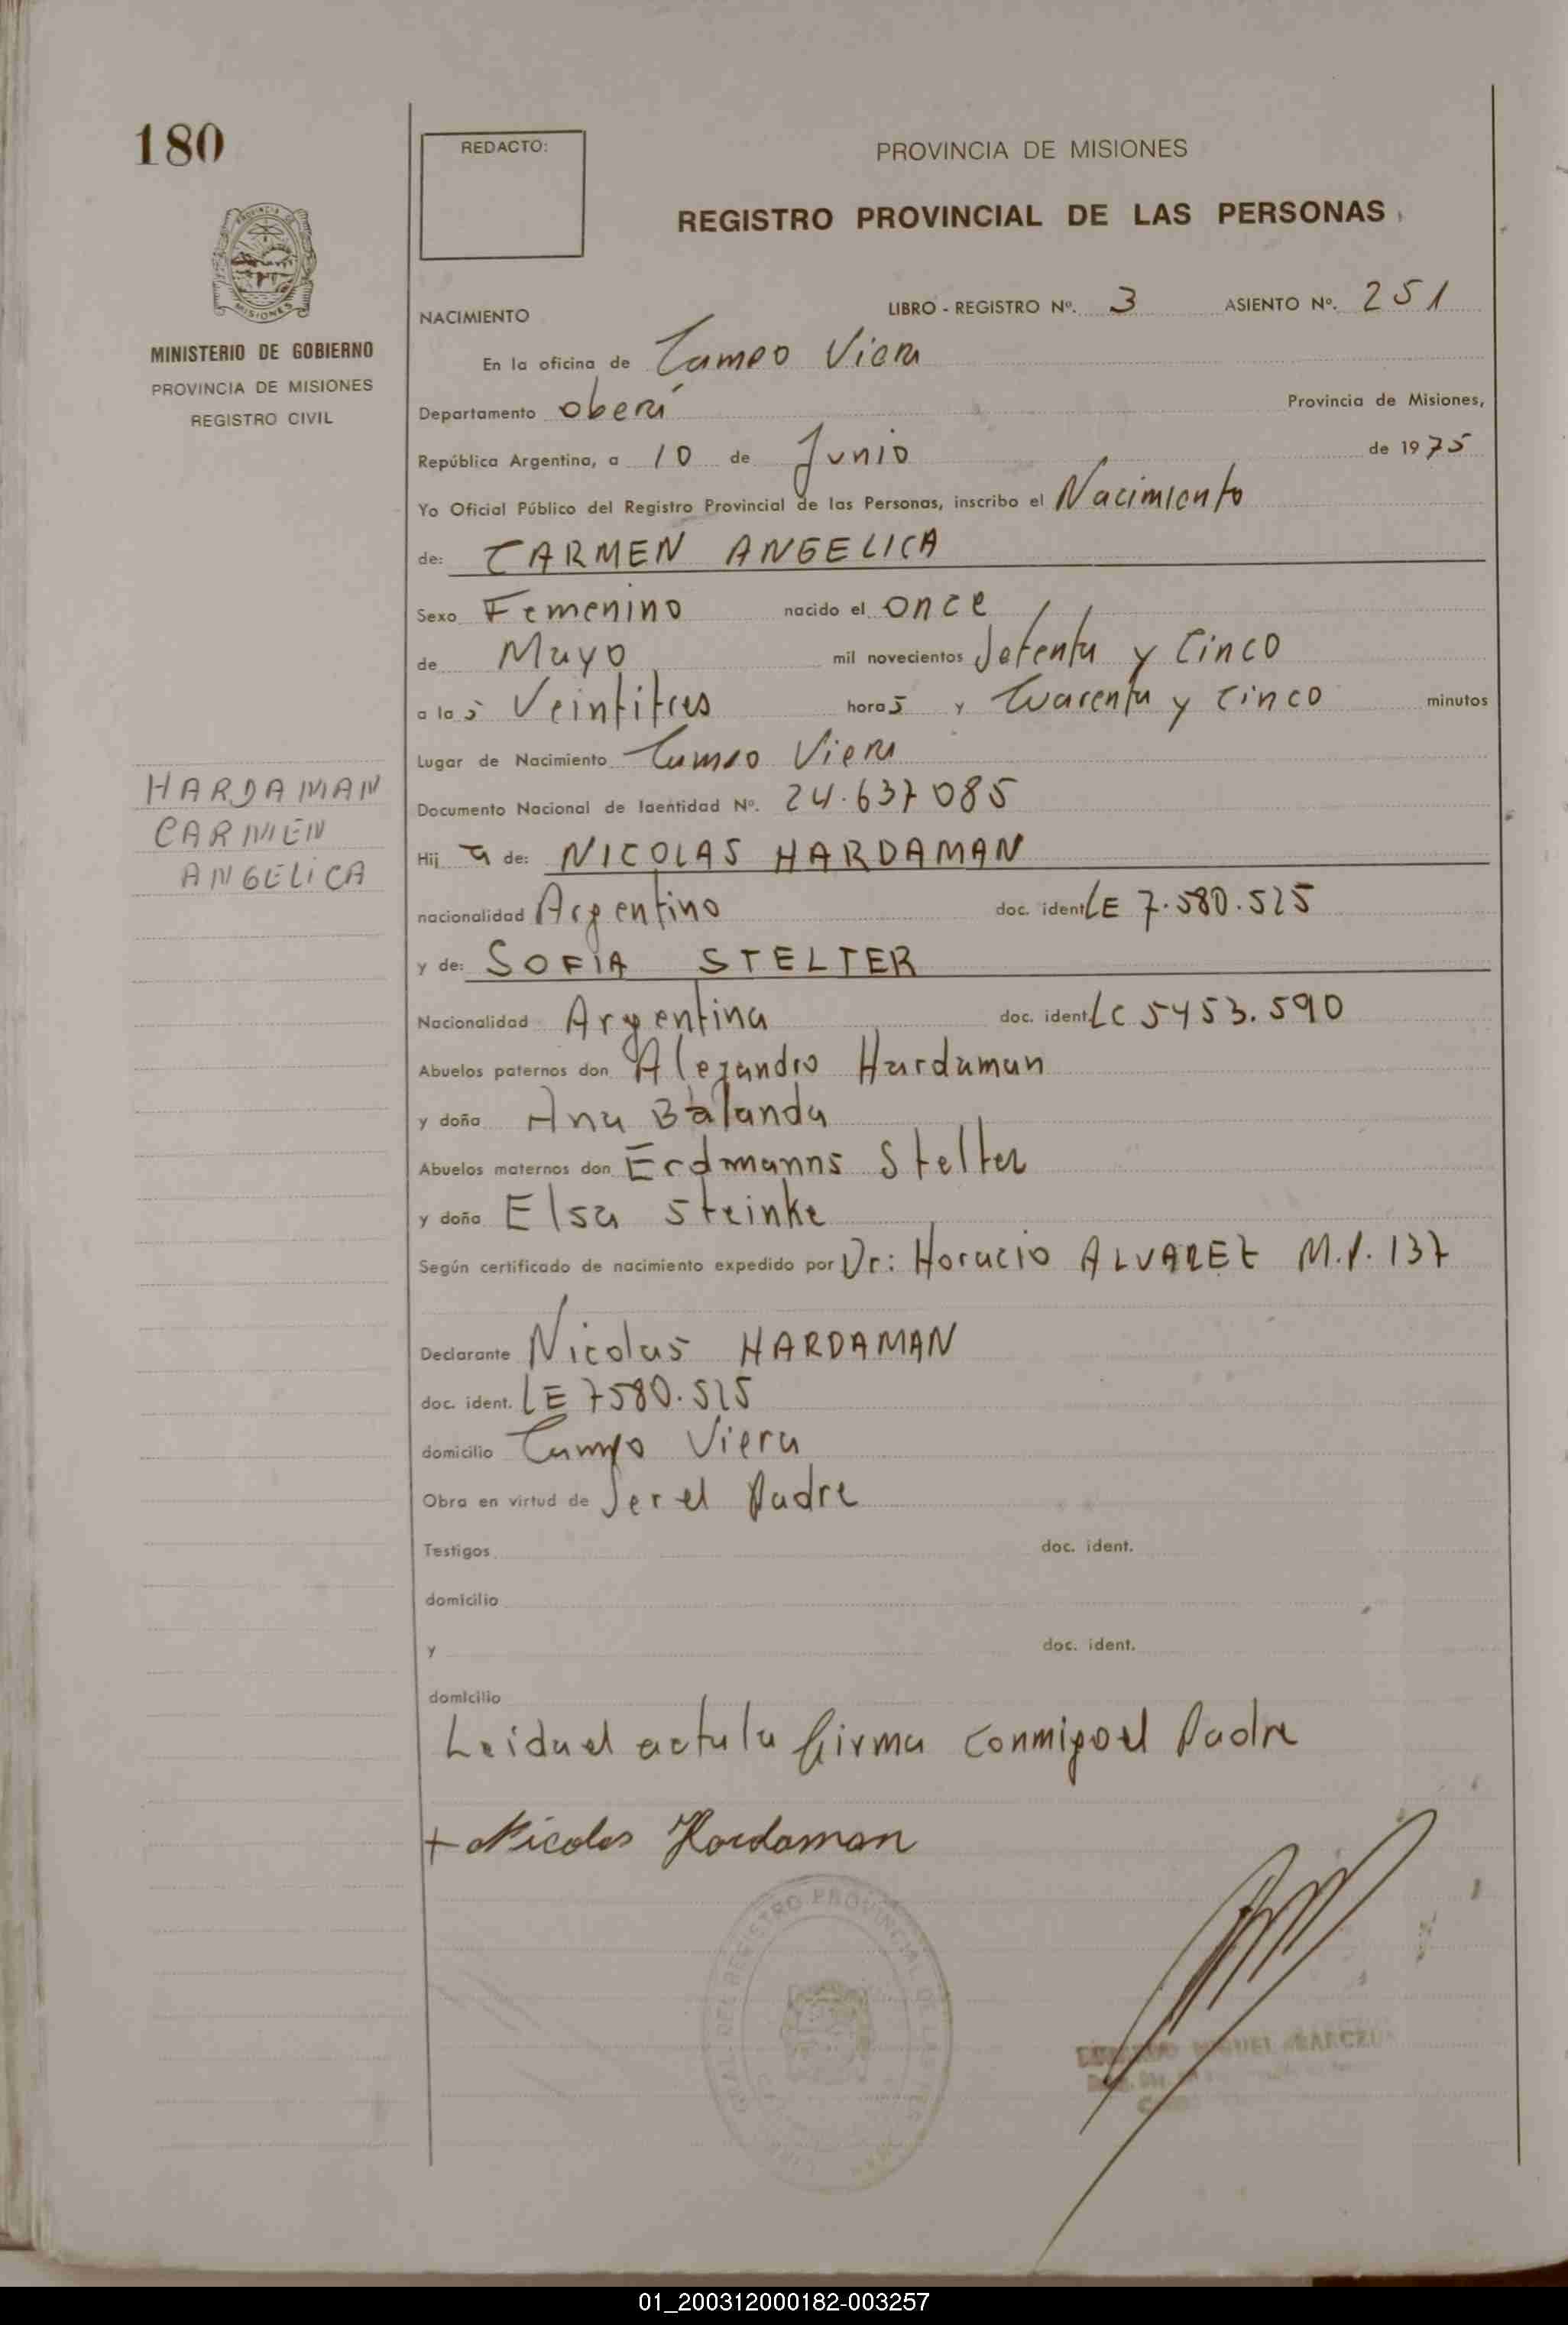 180
REDACTO:
PROVINCIA DE MISIONES
REGISTRO PROVINCIAL DE LAS PERSONAS
MINISTERIO DE GOBIERNO
PROVINCIA DE MISIONES
REGISTRO CIVIL
NACIMIENTO LIBRO - REGISTRO Nº. 3 ASIENTO Nº. 251
En la oficina de Campo Viera
Departamento oberá Provincia de Misiones,
República Argentina, a 10 de Junio de 1975
Yo Oficial Público del Registro Provincial de las Personas, inscribo el Nacimiento
de: CARMEN ANGELICA
Sexo Femenino nacido el once
de Mayo mil novecientos Setenta y Cinco
a las Veintitres horas y Cuarenta y Cinco minutos
Lugar de Nacimiento Campo Viera
Documento Nacional de Identidad Nº. 24.637085
HARDAMAN
CARMEN
ANGELICA
Hij a de: NICOLAS HARDAMAN
nacionalidad Argentino doc. ident. LE 7.580.525
y de: SOFIA STELTER
Nacionalidad Argentina doc. ident. LC 5453.590
Abuelos paternos don Alejandro Hardaman
y doña Ana Balanda
Abuelos maternos don Erdmanns Stelter
y doña Elsa Steinke
Según certificado de nacimiento expedido por Dr: Horacio ALVAREZ M.P. 137
Declarante Nicolas HARDAMAN
doc. ident. LE 7580.525
domicilio Campo Viera
Obra en virtud de Ser el Padre
Testigos doc. ident.
domicilio
y doc. ident.
domicilio
Leida el acta la firma conmigo el Padre
+ Nicolas Hardaman
REGISTRO PROVINCIAL DE LAS
01_200312000182-003257